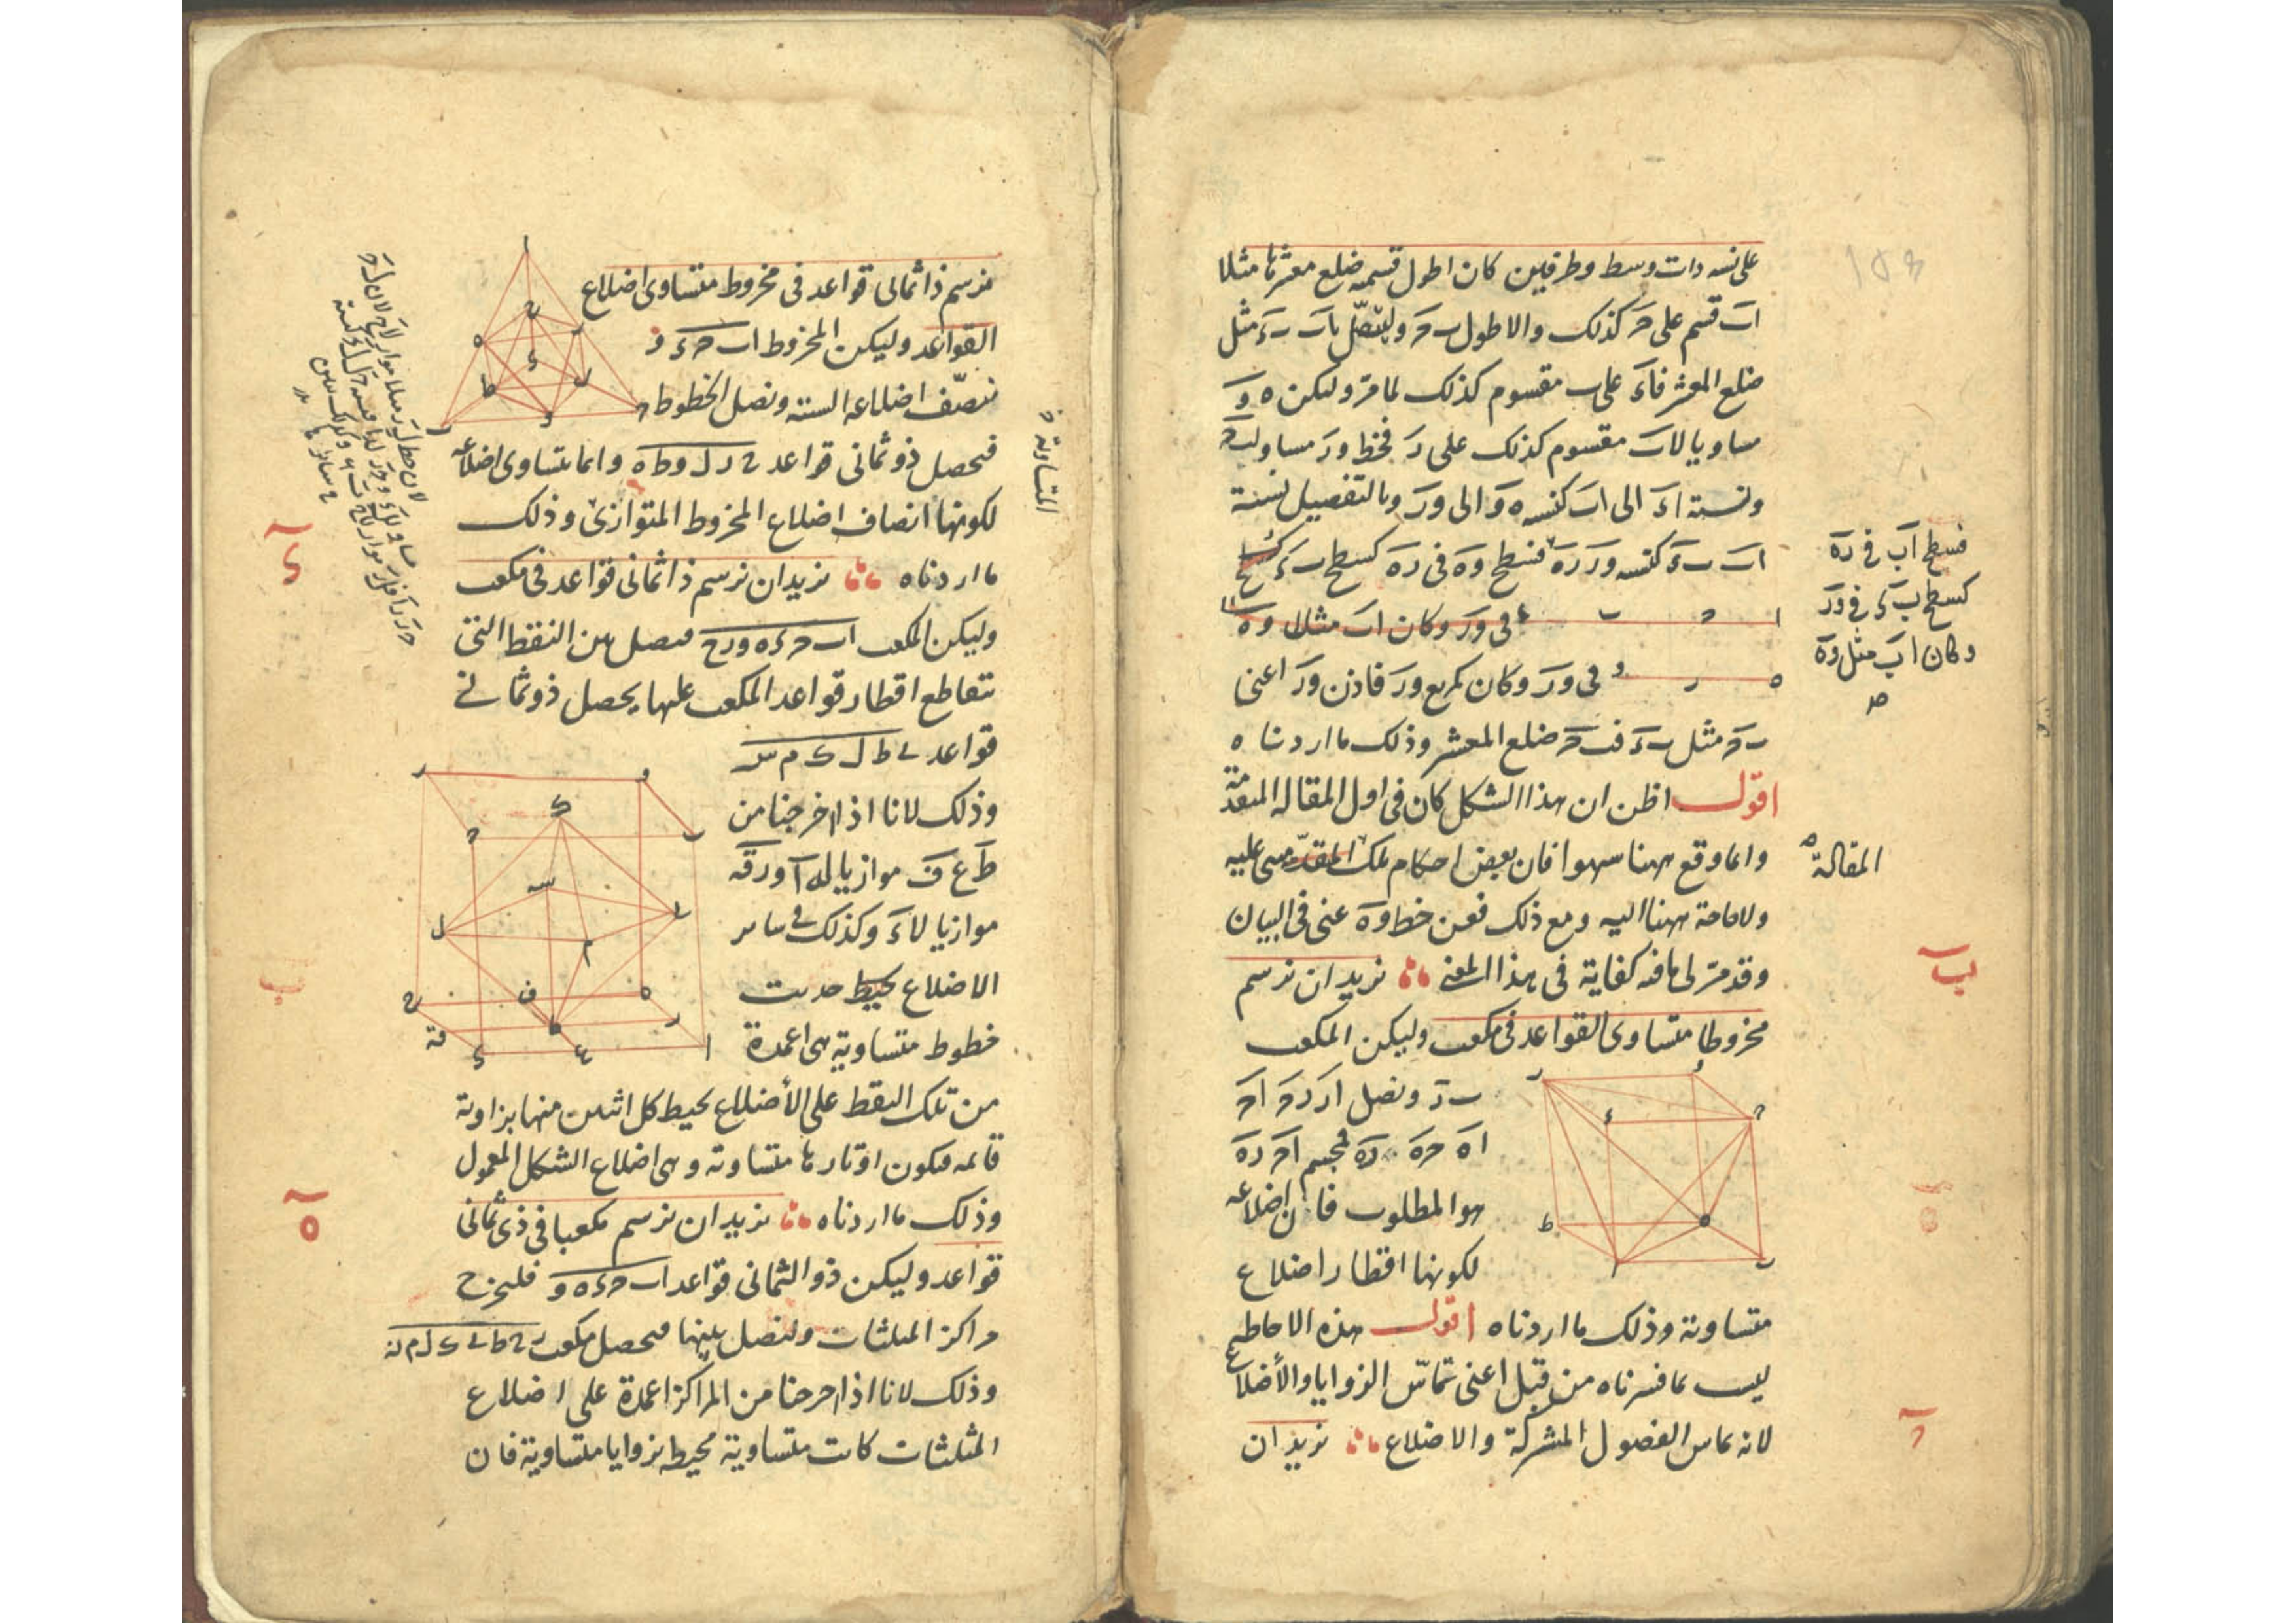 على نسبة ذات وسط وطرفين كان اطول قسميه ضلع معشرها مثلا
اب قسم على حـ كذلك والاطول ب حـ وليتصل باب ب ء مثل
ضلع المعشر فا ء على ب مقسوم كذلك لما مر وليكن ه و
مساويا لاب مقسوم كذلك على ر فخط و ر مساو لب حـ
ونسبة ا ء الى اب كنسبة ه و الى و ر وبالتفصيل نسبة
اب ب ء كنسبة و ر ر ه فسطح و ه فى ر ه كسطح ب ء
فى و ر وكان اب مثل و ه
فى و ر وكان كمربع و ر فاذن و ر اعنى
ب حـ مثل ب ء فب حـ ضلع المعشر وذلك ما اردناه
اقول اظن ان هذا الشكل كان فى اول المقالة المتقدمة
وانما وقع ههنا سهوا فان بعض احكام تلك مبنى عليه
ولا حاجة ههنا اليه ومع ذلك فعن خط و ه غنى فى البيان
وقد مر لى ما فيه كفاية فى هذا المعنى نريد ان نرسم
مخروطا متساوى القواعد فى مكعب وليكن المكعب
ب ر ونصل ا ر ر حـ ا حـ
ا ه حـ ه ر ه فمجسم ا حـ ر ه
هو المطلوب فان اضلاعه
لكونها اقطار اضلاع
متساوية وذلك ما اردناه اقول هذه الاحاطة
ليست بما فسرناه من قبل اعنى تماس الزوايا والأضلاع
لانه تماس الفصول المشتركة والاضلاع نريد ان
فسطح اب فى ر ه
كسطح ب ء فى و ر
وكان اب مثل و ه
صح
المقالة
لب
حـ
نرسم ذا ثمانى قواعد فى مخروط متساوى اضلاع
القواعد وليكن المخروط اب حـ ء و
ننصف اضلاعه الستة ونصل الخطوط
فيحصل ذو ثمانى قواعد ح ر ل و ط ه وانما يتساوى اضلاعه
لكونها انصاف اضلاع المخروط المتوازى وذلك
ما اردناه نريد ان نرسم ذا ثمانى قواعد فى مكعب
وليكن المكعب اب حـ ء ه و ر ح فنصل بين النقط التى
تتقاطع اقطار قواعد المكعب عليها يحصل ذو ثمانى
قواعد ى ط ل ك م س
وذلك لانا اذا اخرجنا من
ط ع ف موازيا له ا و ر قه
موازيا لا ء وكذلك فى سائر
الاضلاع يحيط حدثت
خطوط متساوية هى اعمدة
من تلك النقط على الأضلاع يحيط كل اثنين منها بزاوية
قائمة فيكون اوتارها متساوية وهى اضلاع الشكل المعمول
وذلك ما اردناه نريد ان نرسم مكعبا فى ذى ثمانى
قواعد وليكن ذو الثمانى قواعد اب حـ ء ه و فليخرج
مراكز المثلثات ولنصل بينها فيحصل مكعب ر ح ط ى ك ل م نه
وذلك لانا اذا اخرجنا من المراكز اعمدة على اضلاع
المثلثات كانت متساوية محيطة بزوايا متساوية فان
المتساوية
ء
ه